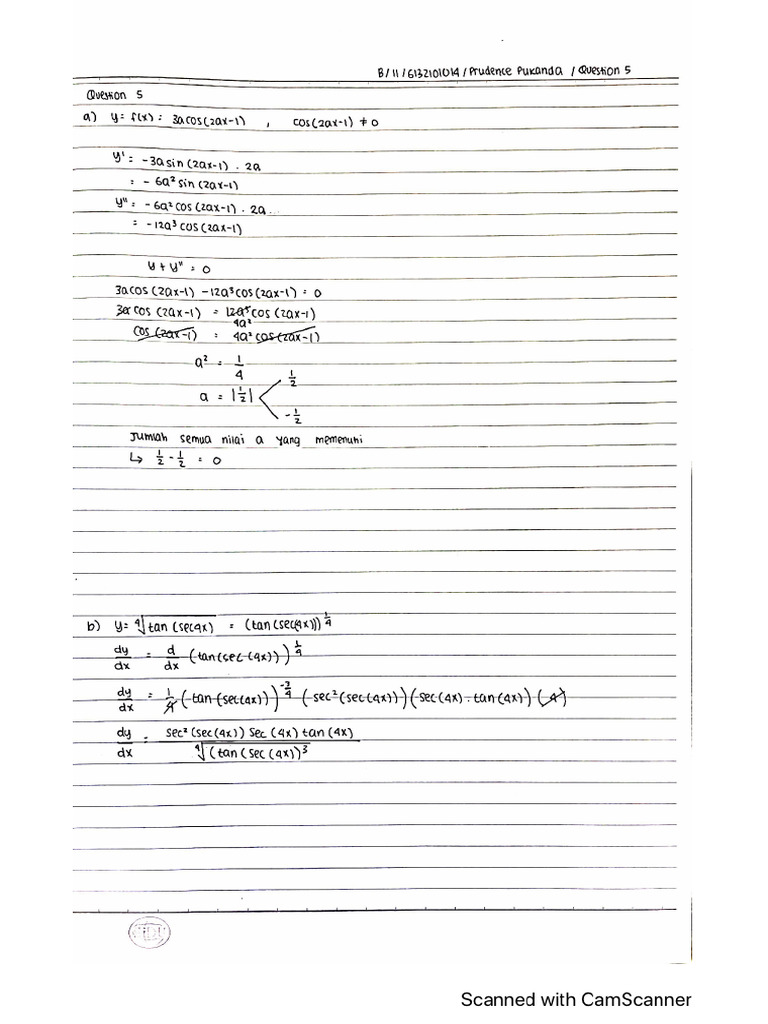 B/11/6132101014/Prudence Pukanda / Question 5
Question 5
a) y = f(x) = 3a cos(2ax-1) , cos(2ax-1) ≠ 0
y' = -3a sin(2ax-1) . 2a
= - 6a² sin(2ax-1)
y'' = - 6a² cos(2ax-1) . 2a
= -12a³ cos(2ax-1)
y + y'' = 0
3a cos(2ax-1) -12a³ cos(2ax-1) = 0
3a cos (2ax-1) = 12a³ cos(2ax-1)
4a²
cos (2ax-1) = 4a² cos(2ax-1)
a² = 1/4
a = |1/2| 1/2
-1/2
Jumlah semua nilai a yang memenuhi
↳ 1/2 - 1/2 = 0
b) y = ⁴√tan (sec4x) = (tan(sec(4x)))^1/4
dy/dx = d/dx (tan(sec(4x)))^1/4
dy/dx = 1/4 (tan(sec(4x)))^-3/4 (sec²(sec(4x)))(sec(4x) . tan(4x)) (4)
dy/dx = sec²(sec(4x)) sec (4x) tan (4x) / ⁴√(tan (sec (4x))³
Scanned with CamScanner